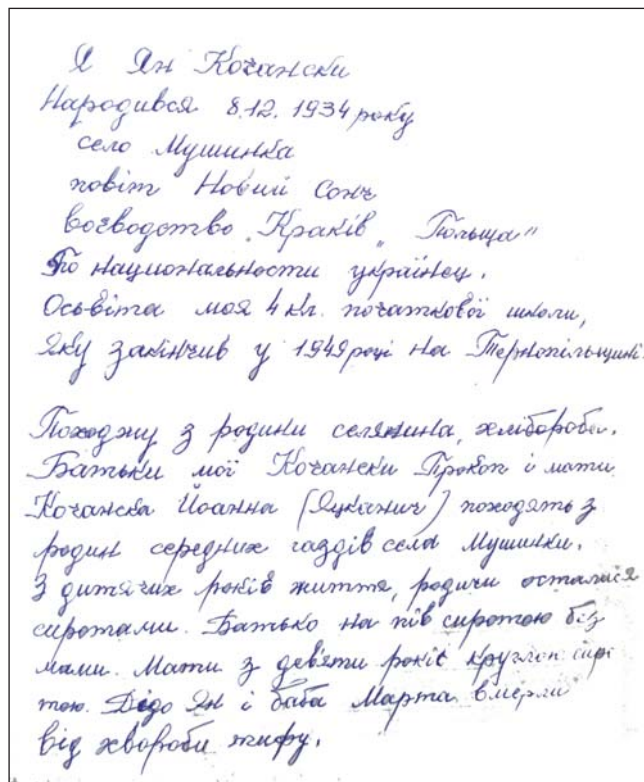 Я Ян Кочански
Народився 8.12.1934 року
село Мушинка
повіт Новий Сонч
воєводство „Краків„ Польща"
По национальности українец.
Осьвіта моя 4 кл. початкової школи,
яку закінчив у 1949 році на Тернопільщині.
Походжу з родини селянина, хлібороба.
Батьки мої Кочански Прокоп і мати
Кочанска Йоанна (Яцканич) походять з
родин середних газдів села Мушинки.
З дитячих років життя, родичи осталися
сиротами. Батько на пів сиротою без
мами. Мати з девяти років круглою сиро
тою. Дідо Ян і баба Марта вмерли
від хвороби тифу.